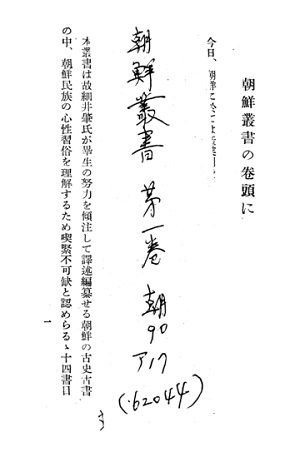 朝鮮叢書の卷頭に
今日、朝鮮に
朝鮮叢書 第一巻 朝90
ア17
(62044)
本叢書は故細井肇氏が畢生の努力を傾注して譯述編纂せる朝鮮の古史古書
の中、朝鮮民族の心性習俗を理解するため喫緊不可缺と認めらるゝ十四書目
一